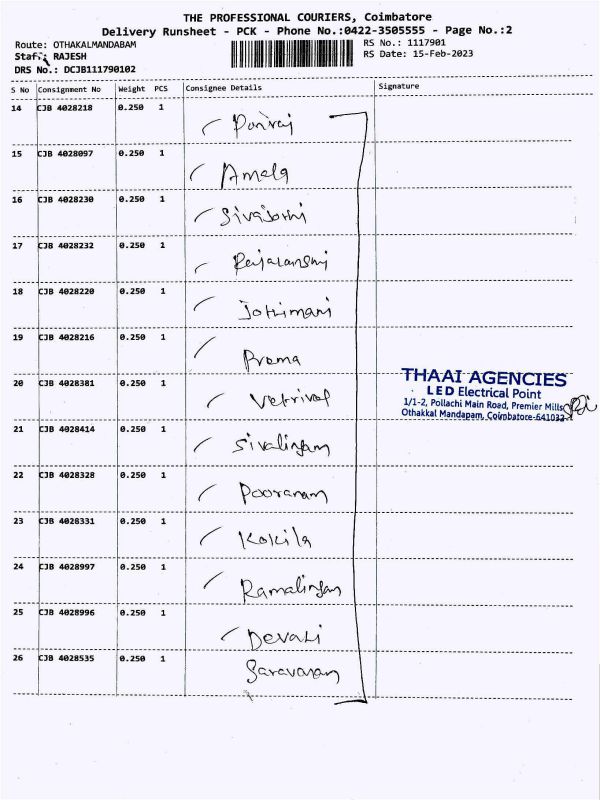 THE PROFESSIONAL COURIERS, Coimbatore
Delivery Runsheet - PCK - Phone No.:0422-3505555 - Page No.:2
Route: OTHAKALMANDABAM
RS No.: 1117901
Staff: RAJESH
RS Date: 15-Feb-2023
DRS No.: DCJB111790102
S No Consignment No Weight PCS Consignee Details Signature
14 CJB 4028218 0.250 1
Ponraj
15 CJB 4028097 0.250 1
Amala
16 CJB 4028230 0.250 1
Sivajothi
17 CJB 4028232 0.250 1
18 CJB 4028220 0.250 1
Jothimani
19 CJB 4028216 0.250 1
Prema
THAAI AGENCIES
LED Electrical Point
1/1-2, Pollachi Main Road, Premier Mills
Othakkal Mandapam, Coimbatore-641032
20 CJB 4028381 0.250 1
Vetrivel
21 CJB 4028414 0.250 1
Sivalingam
22 CJB 4028328 0.250 1
Pooranam
23 CJB 4028331 0.250 1
Kokila
24 CJB 4028997 0.250 1
Ramalingam
25 CJB 4028996 0.250 1
Devaki
26 CJB 4028535 0.250 1
Saravanan